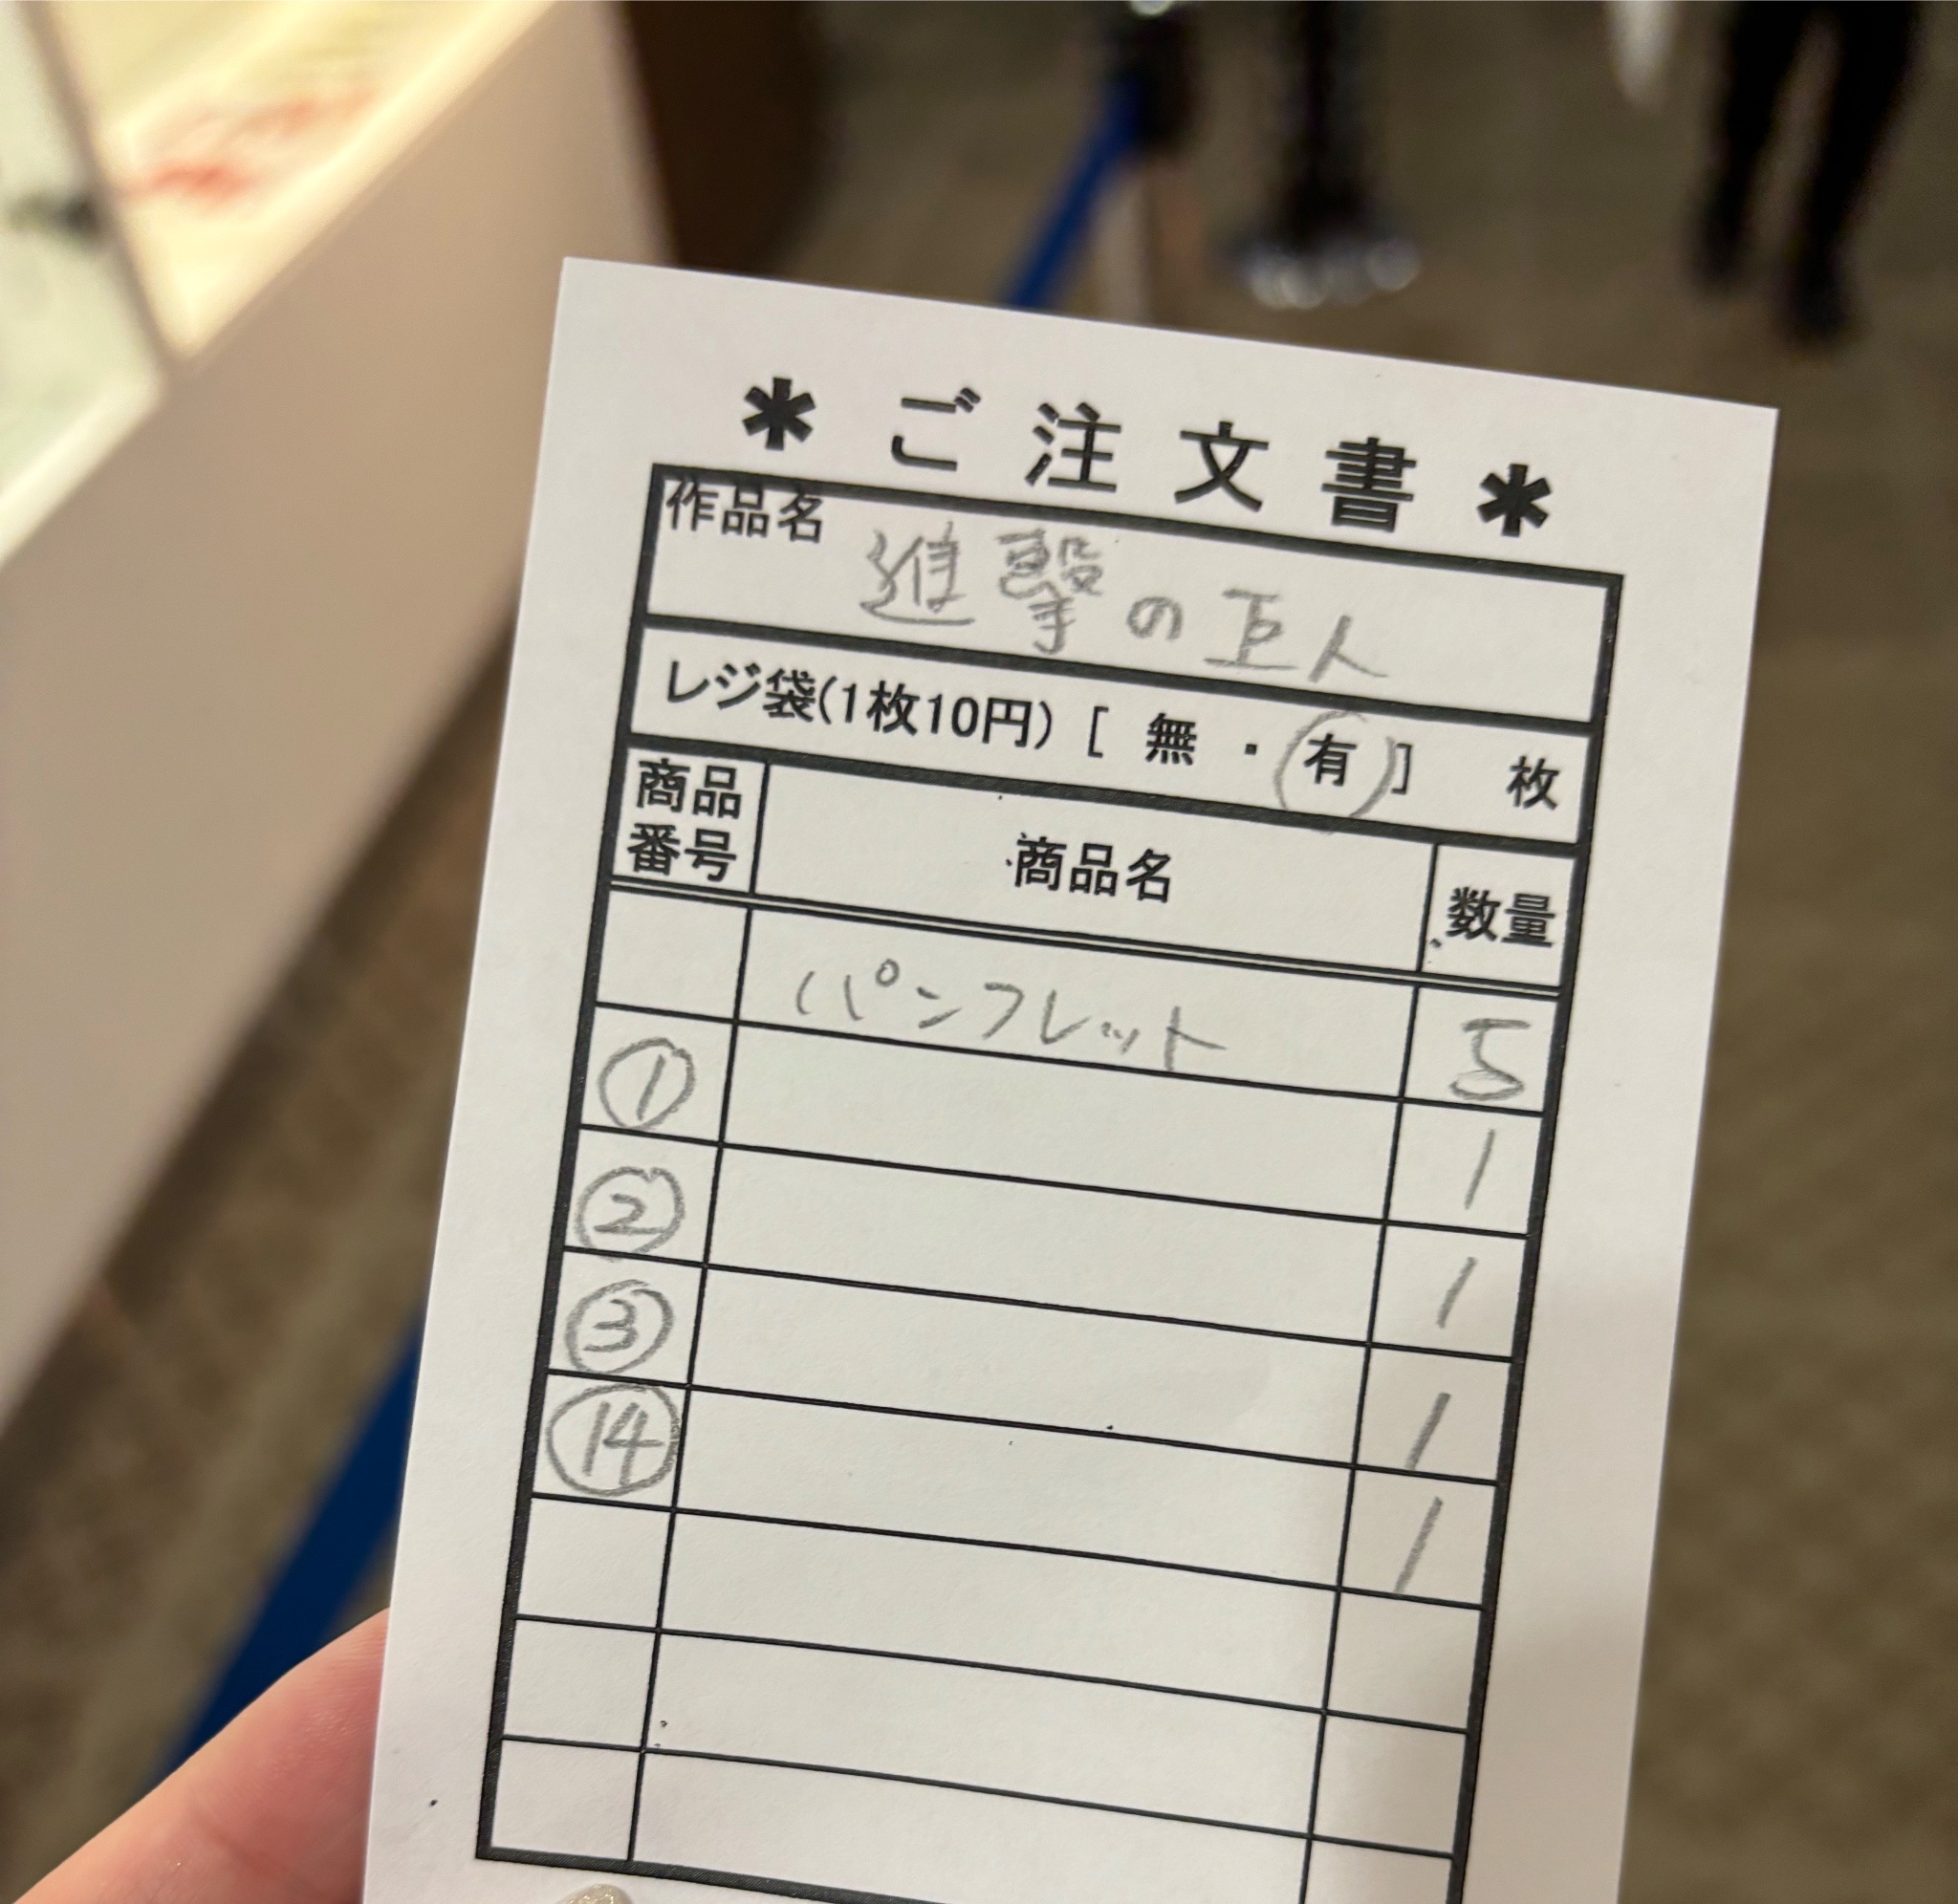 ＊ご注文書＊
作品名 進撃の巨人
レジ袋(1枚10円) [ 無 ・ 有 ] 枚
商品番号 商品名 数量
パンフレット 5
① 1
② 1
③ 1
⑭ 1